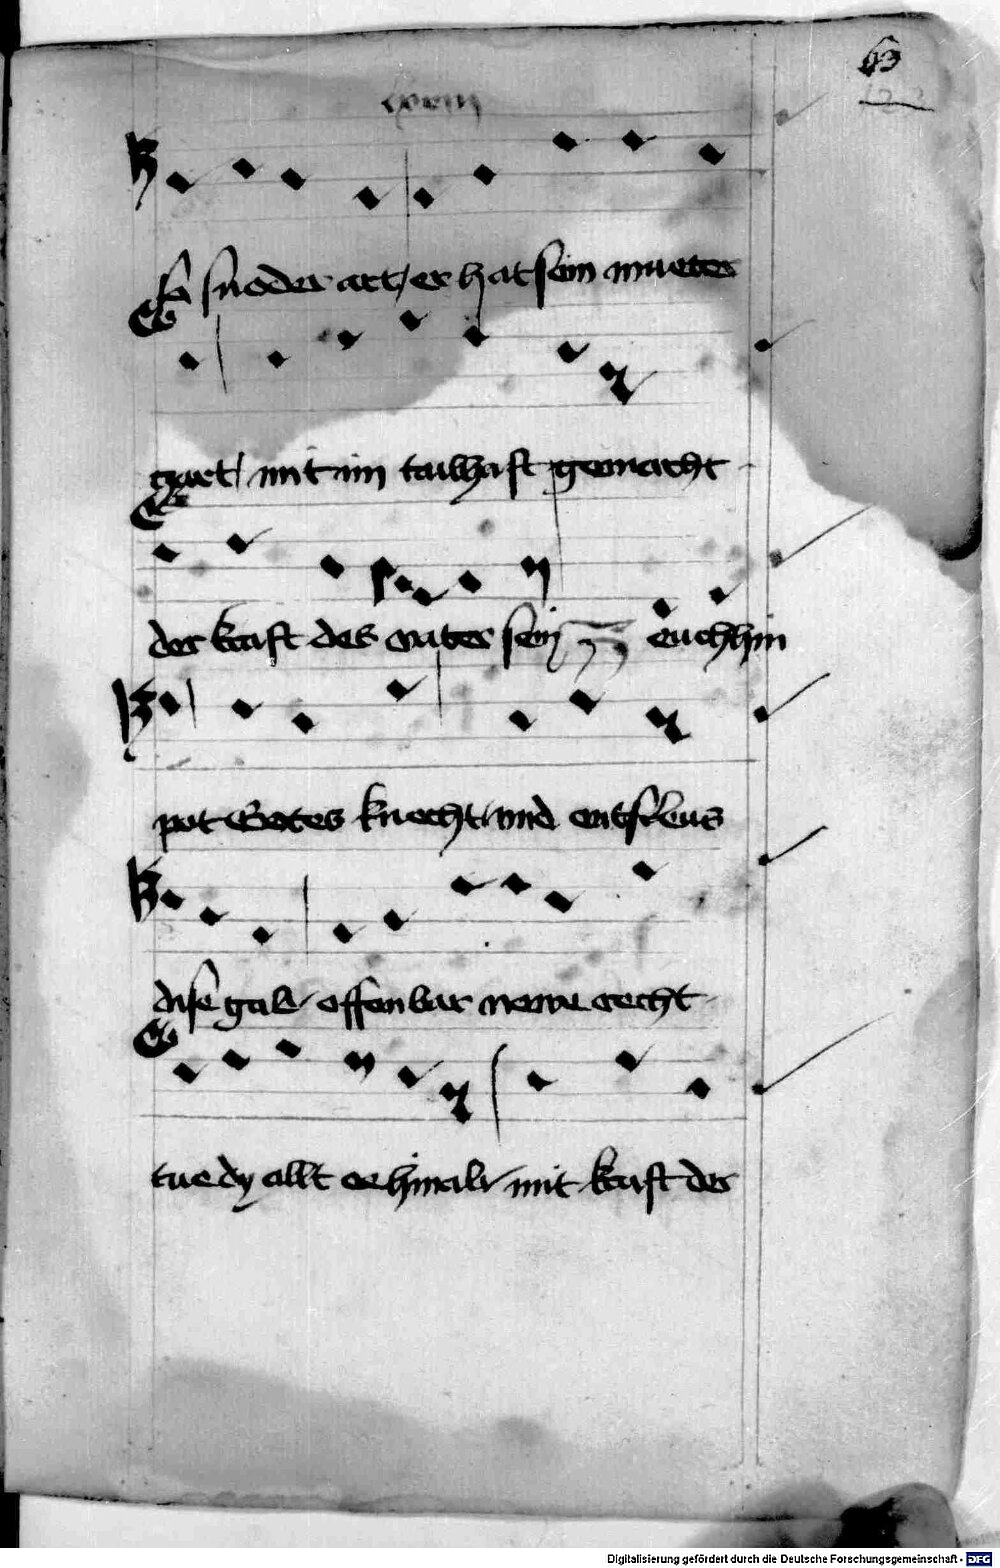 so snöder art / er hat sein muetes
zart / mit im tailhaft gemacht
der kraft des vater sein euch hin
pot Gotes knecht / und entsleus
dise gab / offenbar newe recht
tue dy allt / mit kraft der
Digitalisierung gefördert durch die Deutsche Forschungsgemeinschaft - DFG